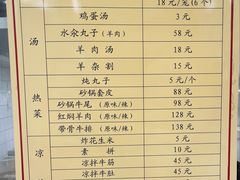 18 元/笼(6个)
汤
鸡蛋汤 3 元
水汆丸子(羊肉) 58 元
羊肉汤 18 元
羊杂割 15 元
热菜
炖丸子 5 元/个
砂锅套皮 88 元
砂锅牛尾 (原味/辣) 98 元
红焖羊肉 (原味/辣) 128 元
带骨牛排 (原味/辣) 138 元
凉
炸花生米 5 元
素拼 10 元
凉拌牛筋 45 元
凉拌牛肚 45 元